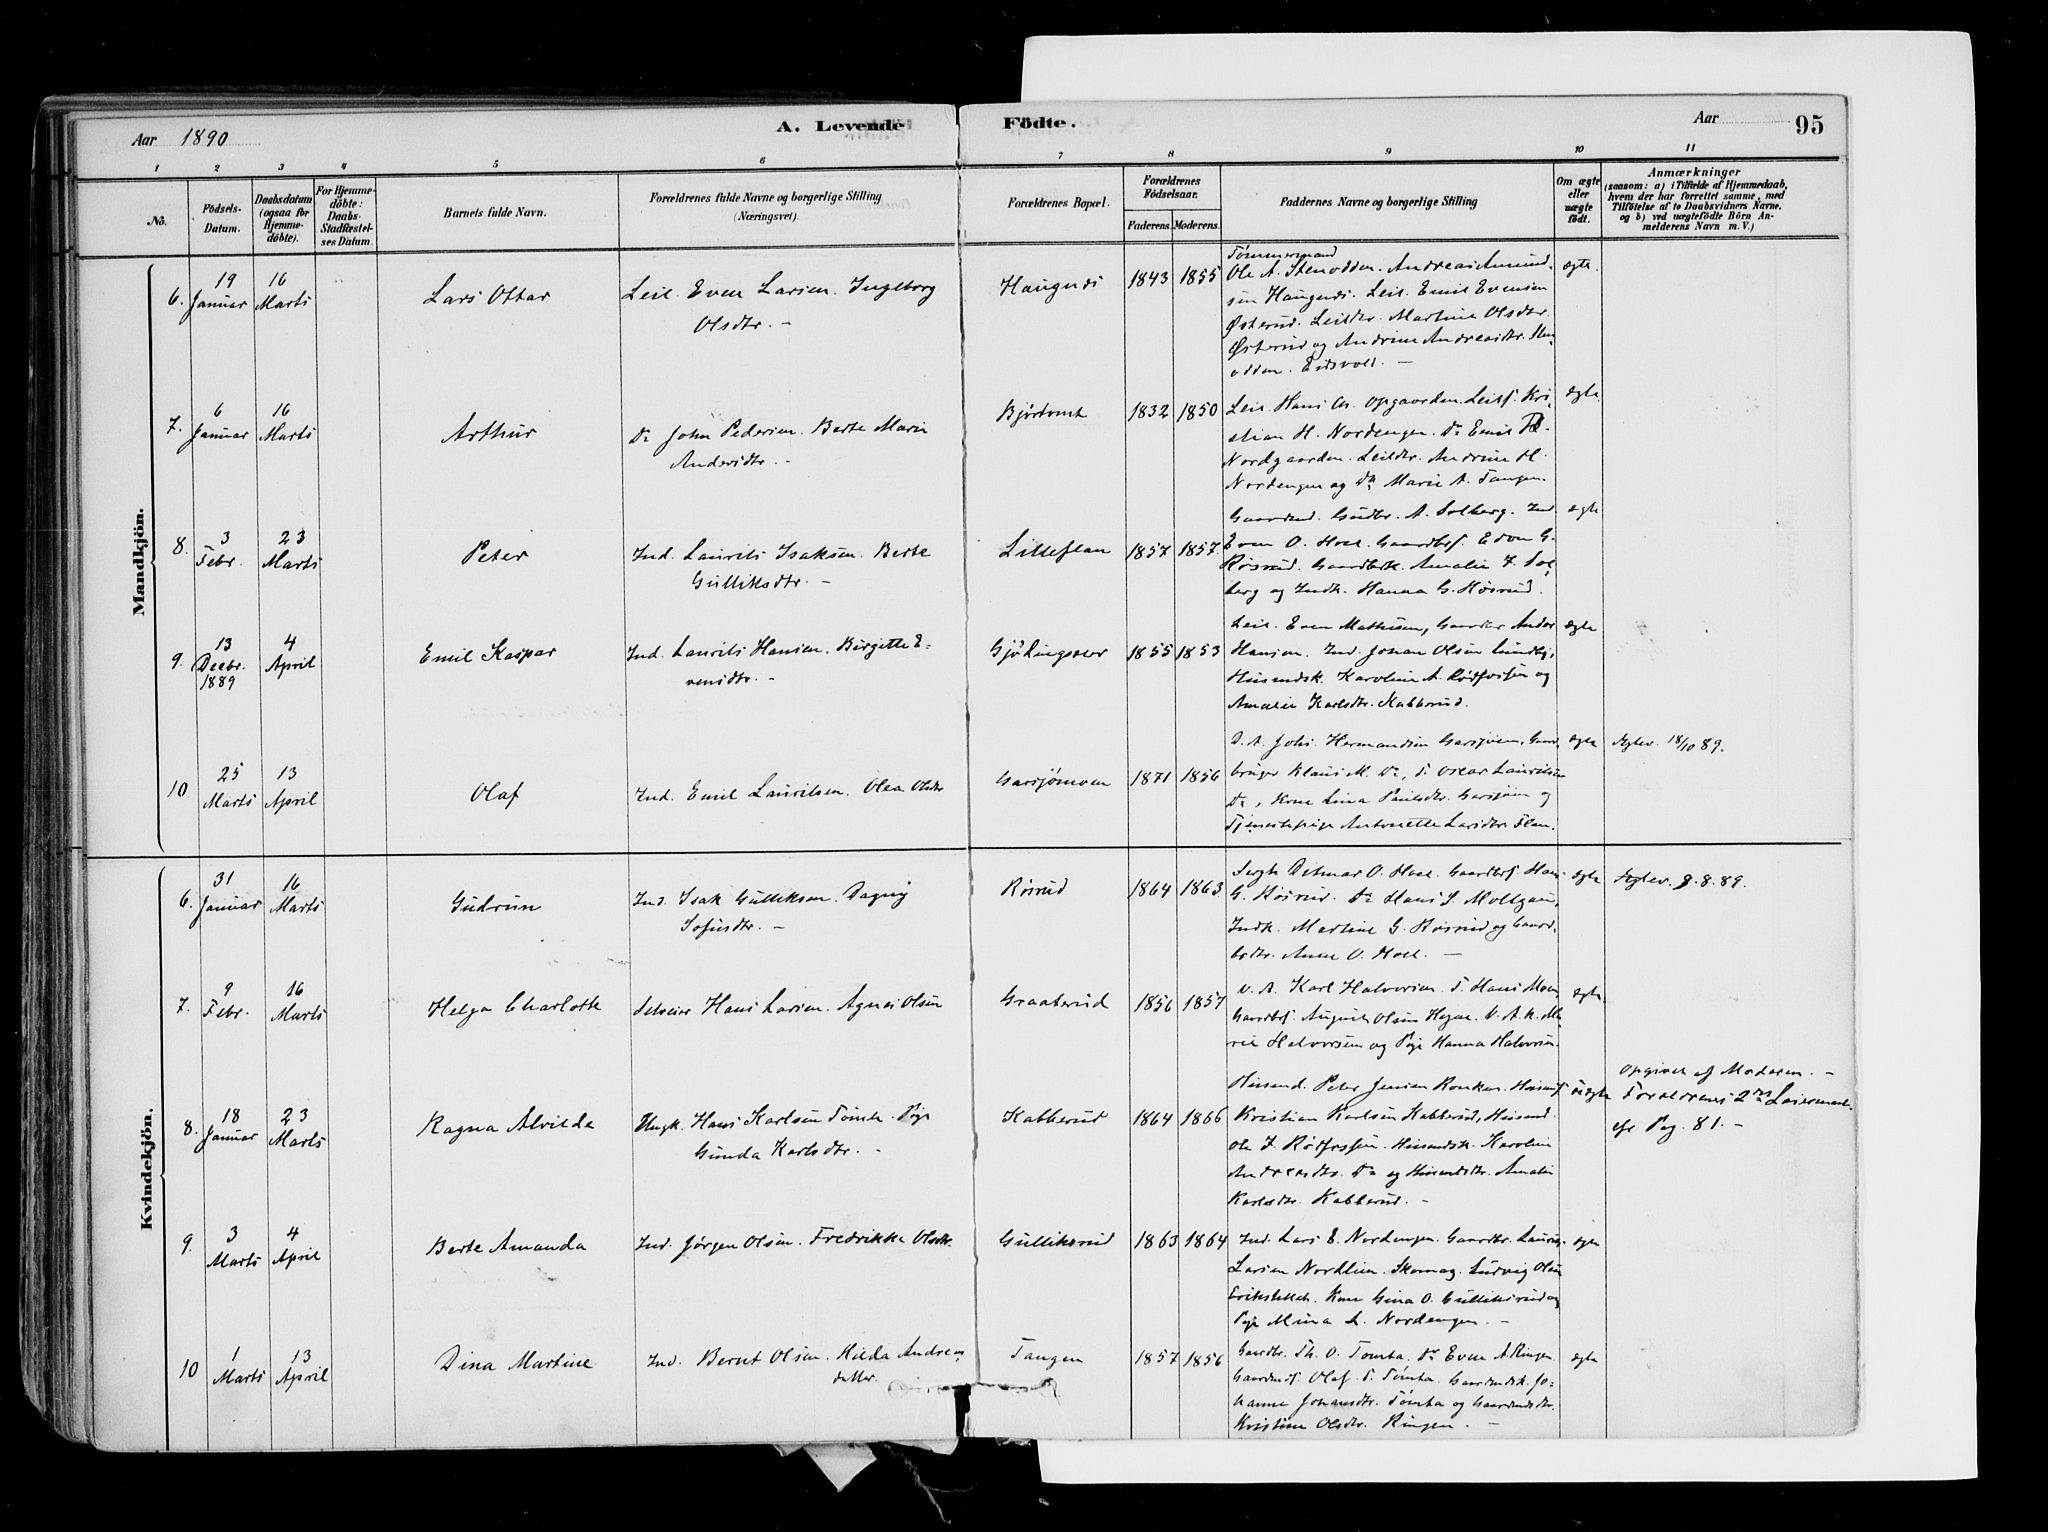 Aar 1890
A. Levende Födte.
Aar
95
1 2 3 4 5 6 7 8 9 10 11
No.
Födsels-Datum.
Daabsdatum (ogsaa for Hjemme-döbte).
For Hjemme-döbte: Daabs-Stadfæstel-ses Datum.
Barnets fulde Navn.
Forældrenes fulde Navne og borgerlige Stilling (Næringsvei).
Forældrenes Bopæl.
Forældrenes Födselsaar.
Faderens. Moderens.
Faddernes Navne og borgerlige Stilling
Om ægte eller uægte födt.
Anmærkninger
(saasom: a) i Tilfælde af Hjemmedaab,
hvem der har forrettet samme, med
Tilföielse af to Daabsvidners Navne,
og b) ved uægtefödte Börn An-
melderens Navn m. V.)
Mandkjön.
6. 19 Januar 16 Marts Lars Ottar Leil. Even Larsen. Ingeborg Olsdtr. - Haugnæs 1843 1855 ægte.
Tømmermand
Ole A. Stenodden. Andreas Amund-
sen Haugnæs. Leil. Emil Evensen
Østerud. Leildtr. Martine Olsdtr.
Østerud og Andrine Andreasdtr. Sten-
odden. Eidsvold. -
7. 6 Januar 16 Marts Arthur Do John Pedersen. Berte Marie Andersdtr. - 1832 1850 ægte.
Leil. Hans Chr. Opgaarden. Leilf. Kri-
stian H. Nordengen. Do Emil
Nordgaarden. Leildtr. Andrine H.
Nordengen og Do Marie A. Tangen.
8. 3 Febr. 23 Marts Peter Ind. Laurits Isaksen. Berte Gulliksdtr. - Lilleflan 1857 1857. ægte
Gaardmd. Gudbr. A. Solberg. Ind.
Even O. Hoel. Gaardbrf. Even G.
Røsrud. Amalie J. Sol-
berg og Indk. Hanna G. Røsrud.
9. 13 Decbr. 1889 4 April Emil Kaspar Ind. Laurits Hansen. Birgitte E-vensdtr. - 1855 1853 ægte
Leil. Even Mathisen, Anders
Hansen. Ind. Johan Olsen Lundby,
Husmdsk. Karoline A. og
Amalie Karlsdtr. Kabberud.
10 25 Marts 13 April Olaf Ind. Emil Lauritsen. Olea Olsdtr Garsjømoen 1871 1856 ægte Ægtev. 18/10 89.
D. A. Johs. Hermansen Garsjøen, Gaard-
bruger Klaus M. Do, T. Oscar Lauritsen
Do, Kone Lina Paulsdtr. Garsjøen og
Tjenestepige Antonette Larsdtr. Flan.
Kvindekjön.
6. 31 Januar 16 Marts Gudrun Ind. Isak Gulliksen. Dagny Sofusdtr. - Røsrud 1864 1863 ægte Ægtev. 8.8.89.
Sergt. Ditmar O. Hoel. Gaardbrf. Hans
G. Røsrud. Do Hans S. Moltzau,
Indk. Martine G. Røsrud og Gaard-
brdtr. Anne O. Hoel. -
7. 9 Febr. 16 Marts Helga Charlotte Hans Larsen. Agnes Olsen Graaterud 1856 1857 ægte
V. A. Karl Halvorsen. T. Hans Moen,
Gaardbrf. August Olsen Hagen. V. A. K. Ma-
rie Halvorsen og Pige Hanna Halvorsen.
8. 18 Januar 23 Marts Ragna Alvilde Ungk. Hans Karlsen Tømte. Pige Gunda Karlsdtr. - Kabberud 1864 1866 uægte
Husmd. Peter Jensen
Kristian Karlsen Kabberud, Husmd.
Ole J. Husmdsk. Karoline
Andreasdtr. Do og Husmdsdtr. Amalie
Karlsdtr. Kabberud. -
Opgivet af Moderen. -
Forældrenes 2det Leiermaal.
cfr Pag. 81. -
9. 3 Marts 4 April Berte Amanda Ind. Jørgen Olsen. Fredrikke Olsdtr. Gulliksrud 1863 1864 ægte
Ind. Lars E. Nordengen. Gaardbr. Laurits
Larsen Nordlien. Skomag. Ludvig Olsen
Kone Gina O. Gulliksrud og
Pige Mina L. Nordengen. -
10 1 Marts 13 April Dina Martine Ind. Bernt Olsen. Hilda Andreas-datter. Tangen 1857 1856 ægte
Gaardbr. Th. O. Tømta. Do Even A. Ringen
Gaardmdsf. Olaf T. Tømta. Gaardmdsk. Jo-
hanne Johansdtr. Tømta og Gaardmdsdtr.
Kristine Olsdtr. Ringen. -